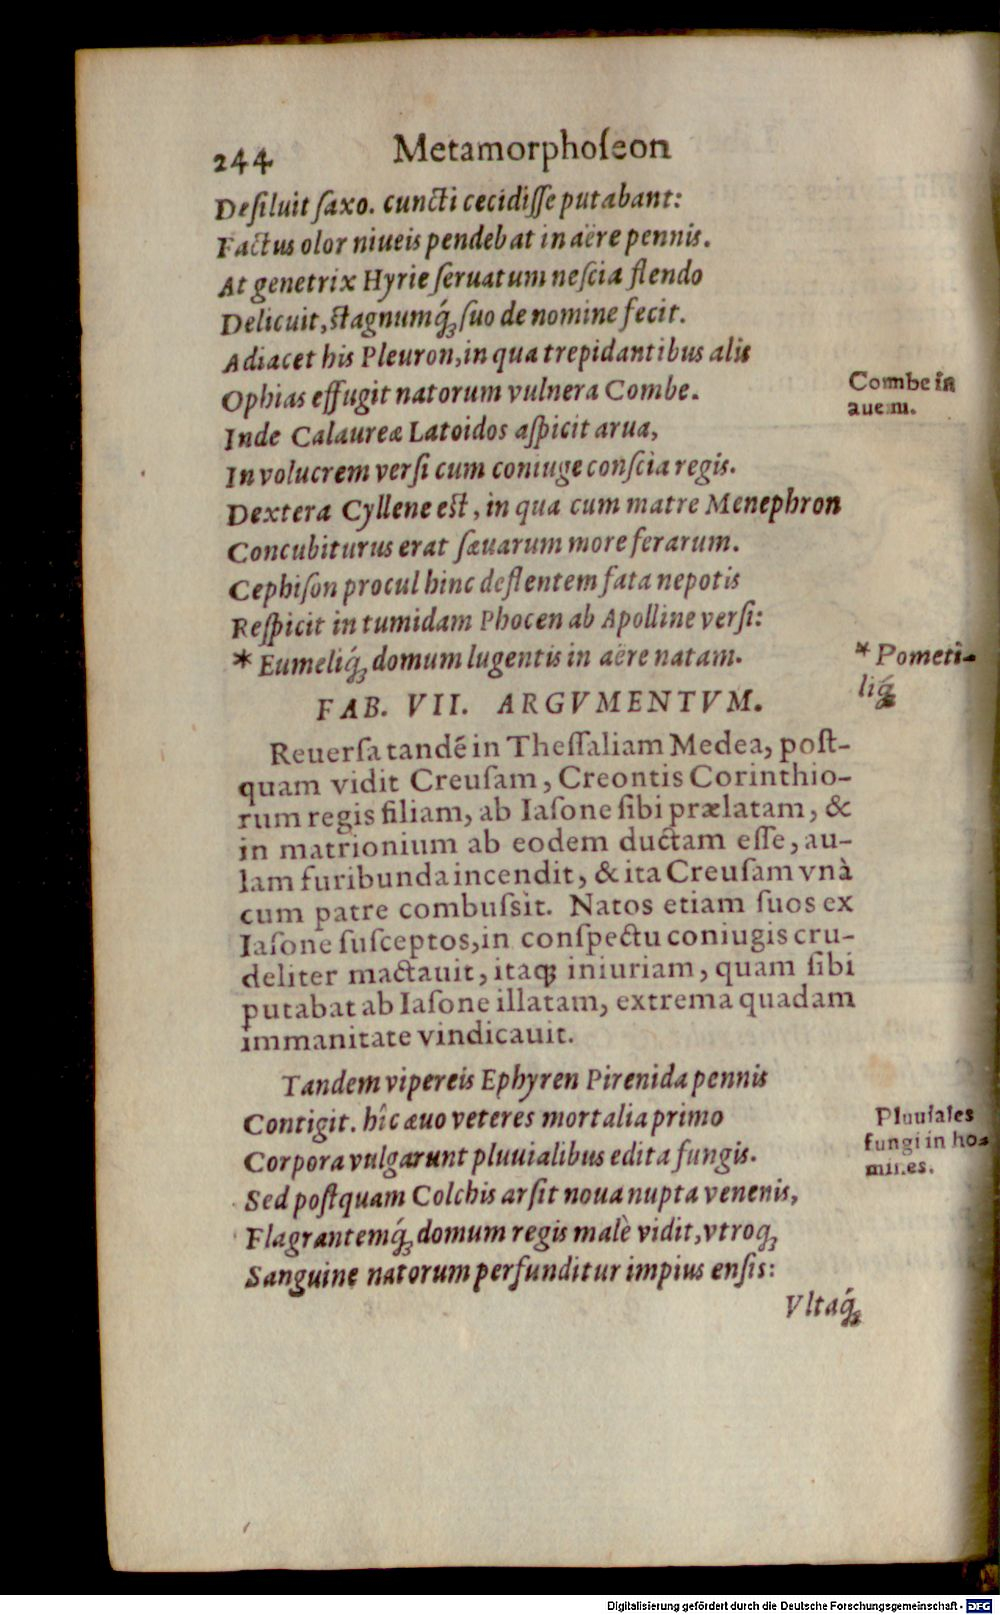 244 Metamorphoſeon
Deſiluit ſaxo. cuncti cecidiſſe putabant:
Factus olor niueis pendebat in aëre pennis.
At genetrix Hyrie ſeruatum neſcia flendo
Delicuit, ſtagnumq́; ſuo de nomine fecit.
Adiacet his Pleuron, in qua trepidantibus alis
Ophias effugit natorum vulnera Combe.
Combe in
auem.
Inde Calaureæ Latoidos aſpicit arua,
In volucrem verſi cum coniuge conſcia regis.
Dextera Cyllene eſt, in qua cum matre Menephron
Concubiturus erat ſæuarum more ferarum.
Cephiſon procul hinc deflentem fata nepotis
Reſpicit in tumidam Phocen ab Apolline verſi:
* Eumeliq́; domum lugentis in aëre natam.
* Pometi-
liq́;
FAB. VII. ARGVMENTVM.
Reuerſa tandē in Theſſaliam Medea, poſt-
quam vidit Creuſam, Creontis Corinthio-
rum regis filiam, ab Iaſone ſibi prælatam, &
in matrionium ab eodem ductam eſſe, au-
lam furibunda incendit, & ita Creuſam vnà
cum patre combuſsit. Natos etiam ſuos ex
Iaſone ſuſceptos, in conſpectu coniugis cru-
deliter mactauit, itaq; iniuriam, quam ſibi
putabat ab Iaſone illatam, extrema quadam
immanitate vindicauit.
Tandem vipereis Ephyren Pirenida pennis
Contigit. hîc æuo veteres mortalia primo
Corpora vulgarunt pluuialibus edita fungis.
Pluuiales
fungi in ho-
mines.
Sed poſtquam Colchis arſit noua nupta venenis,
Flagrantemq́; domum regis malè vidit, vtroq;
Sanguine natorum perfunditur impius enſis:
Vltaq́;
Digitalisierung gefördert durch die Deutsche Forschungsgemeinschaft - DFG